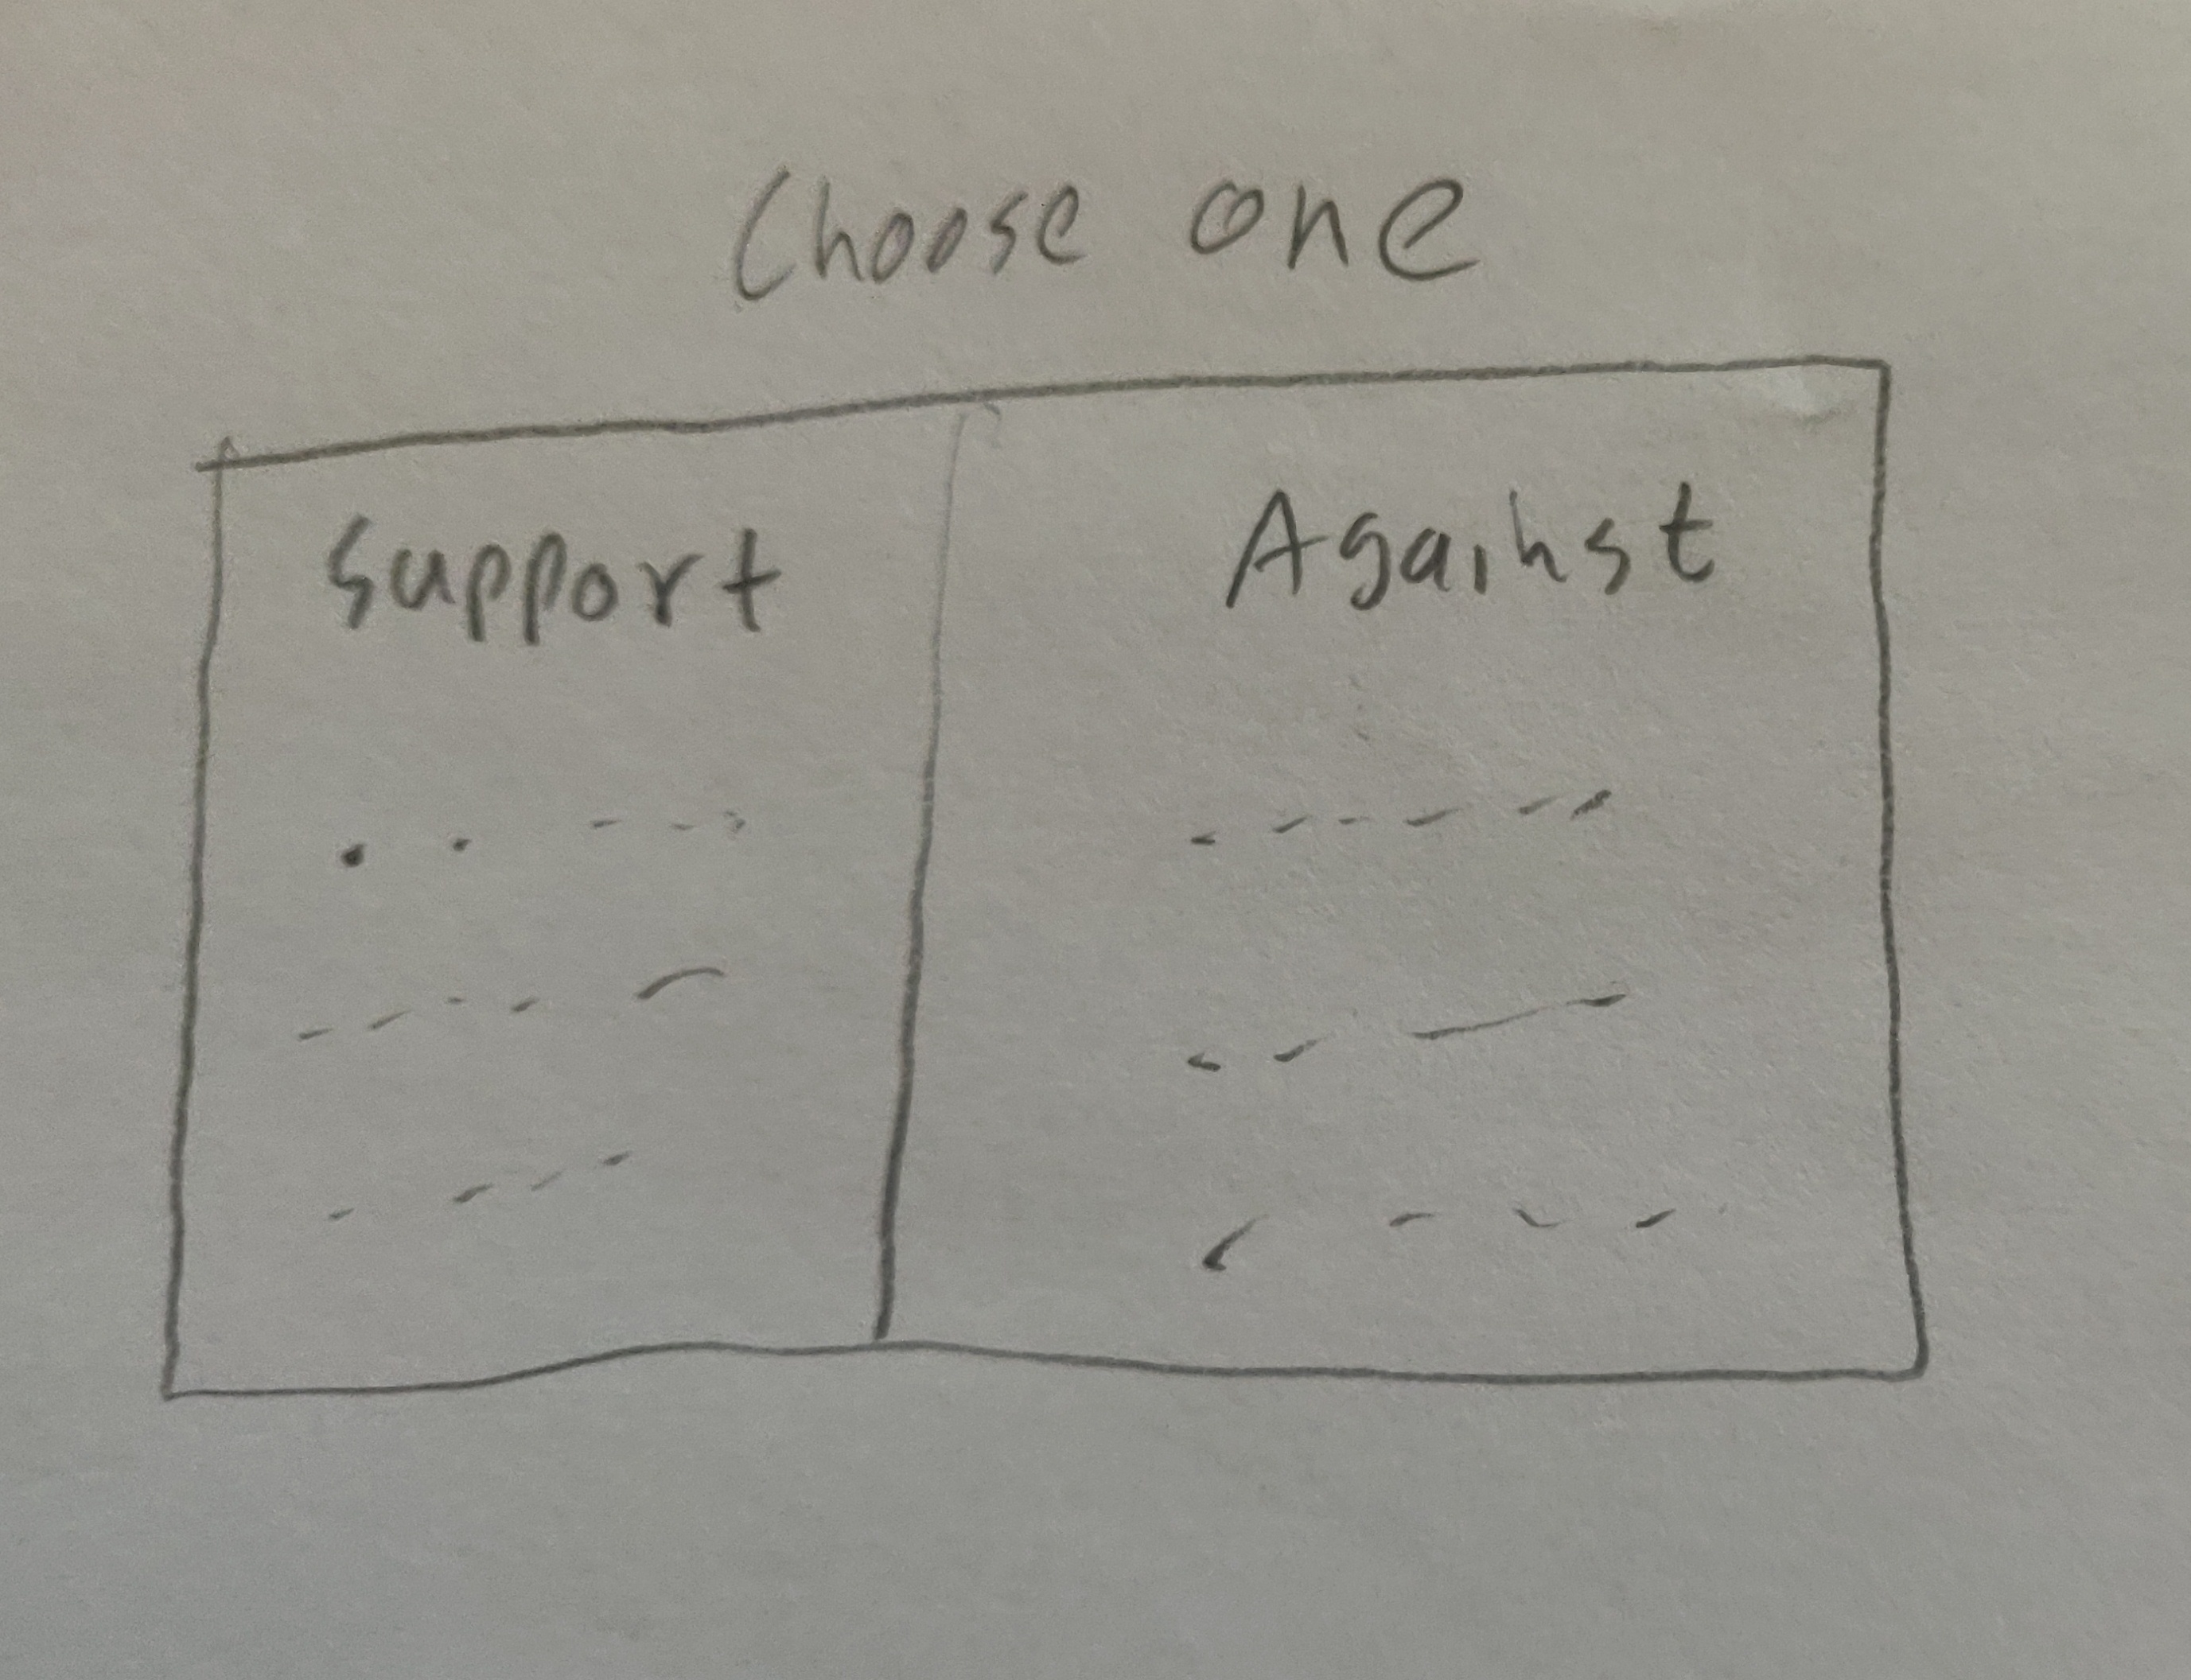 Choose one
Support
Against